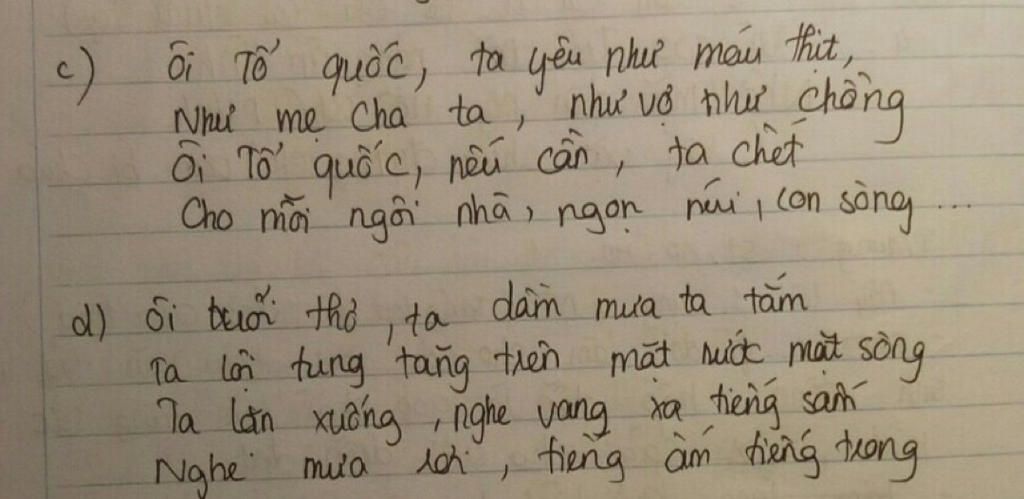 c) Ôi Tổ quốc, ta yêu như máu thịt,
Như mẹ cha ta, như vợ như chồng
Ôi Tổ quốc, nếu cần, ta chết
Cho mỗi ngôi nhà, ngọn núi, con sông ...
d) Ôi tuổi thơ, ta dầm mưa ta tắm
Ta lội tung tăng trên mặt nước mặt sông
Ta lặn xuống, nghe vang xa tiếng sấm
Nghe mưa rơi, tiếng ấm tiếng trong